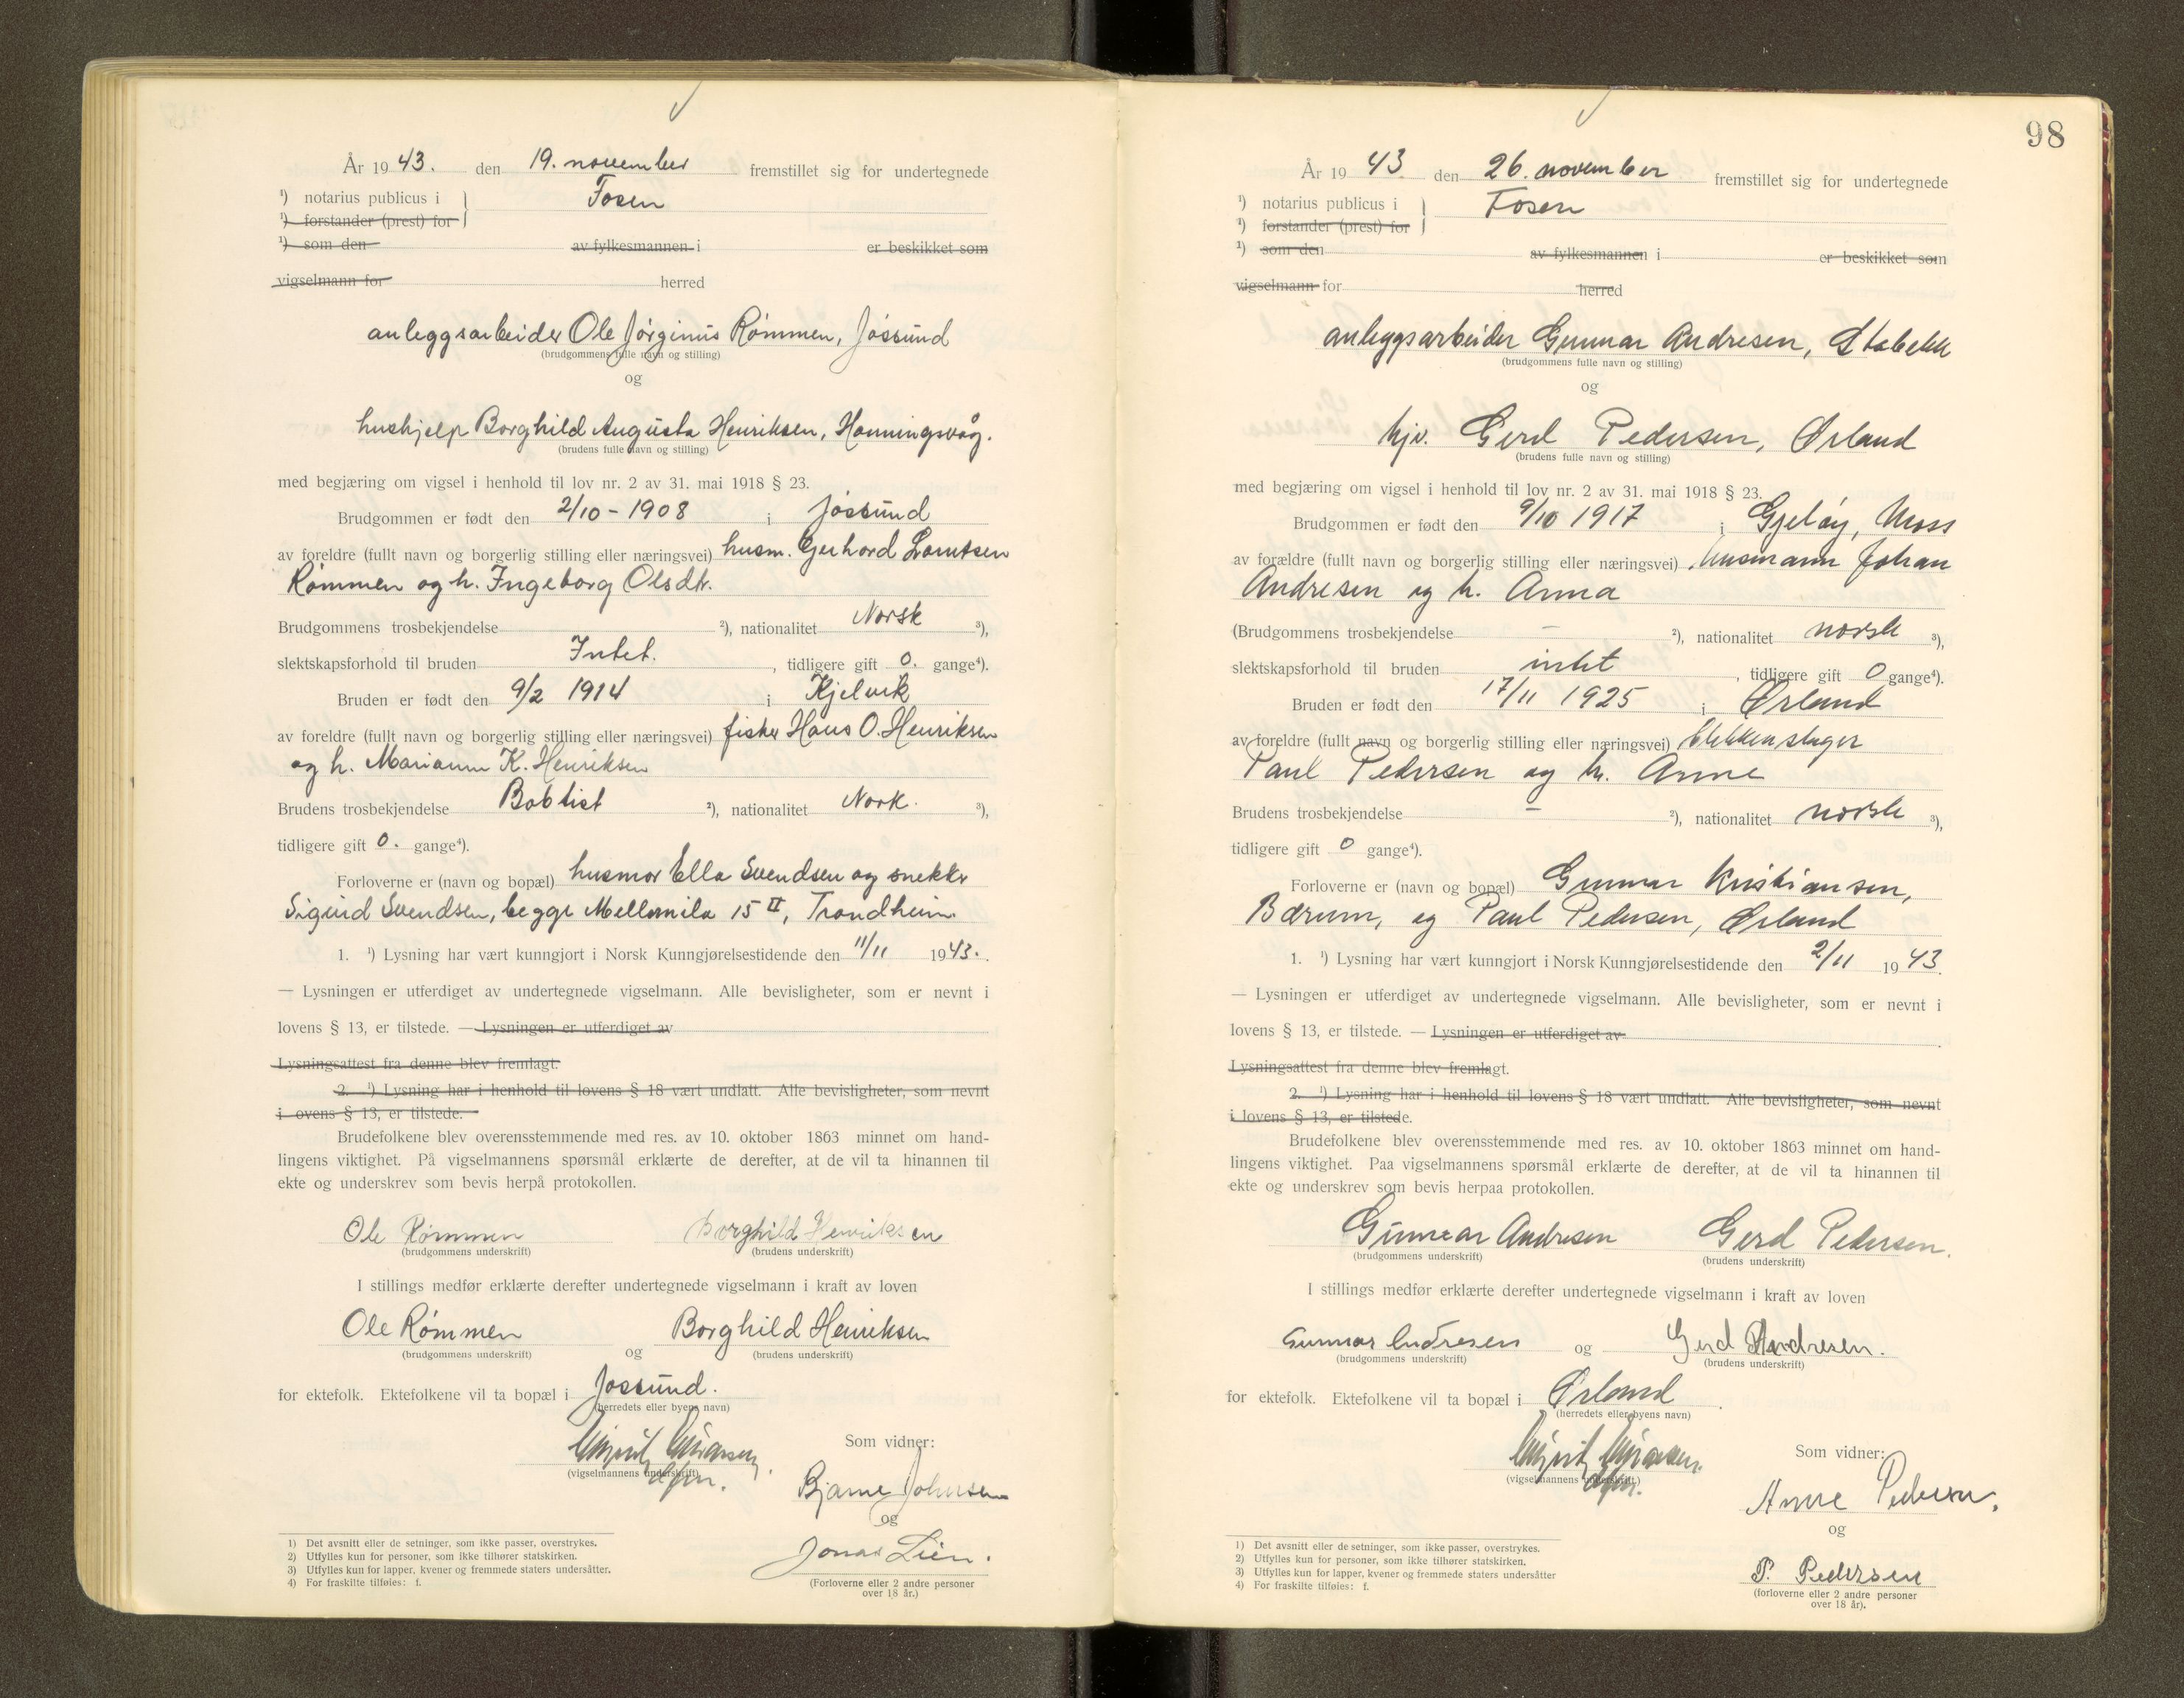 År 19 43. den 19. november fremstillet sig for undertegnede
¹) notarius publicus i } Fosen
¹) forstander (prest) for
¹) som den av fylkesmannen i er beskikket som
vigselmann for herred
anleggsarbeider Ole Jørginus Rømmen, Jøssund
(brudgommens fulle navn og stilling)
og
hushjelp Borghild Augusta Henriksen, Honningsvåg.
(brudens fulle navn og stilling)
med begjæring om vigsel i henhold til lov nr. 2 av 31. mai 1918 § 23.
Brudgommen er født den 2/10 - 1908 i Jøssund
av foreldre (fullt navn og borgerlig stilling eller næringsvei) husm. Gerhard Lorntsen
Rømmen og h. Ingeborg Olsdtr.
Brudgommens trosbekjendelse ²), nationalitet Norsk ³),
slektskapsforhold til bruden Intet. , tidligere gift 0. gange⁴).
Bruden er født den 9/2 1914 i Kjelvik
av foreldre (fullt navn og borgerlig stilling eller næringsvei) fisker Hans O. Henriksen
og h. Mariann K. Henriksen
Brudens trosbekjendelse Babtist ²), nationalitet Nork. ³),
tidligere gift 0. gange⁴).
Forloverne er (navn og bopæl) husmor Ella Svendsen og snekker
Sigurd Svendsen, begge Mellomila 15 II, Trondheim.
1. ¹) Lysning har vært kunngjort i Norsk Kunngjørelsestidende den 11/11 1943.
— Lysningen er utferdiget av undertegnede vigselmann. Alle bevisligheter, som er nevnt i
lovens § 13, er tilstede. — Lysningen er utferdiget av
Lysningsattest fra denne blev fremlagt.
2. ¹) Lysning har i henhold til lovens § 18 vært undlatt. Alle bevisligheter, som nevnt
i ovens § 13, er tilstede.
Brudefolkene blev overensstemmende med res. av 10. oktober 1863 minnet om hand-
lingens viktighet. På vigselmannens spørsmål erklærte de derefter, at de vil ta hinannen til
ekte og underskrev som bevis herpå protokollen.
Ole Rømmen Borghild Henriksen
(brudgommens underskrift) (brudens underskrift)
I stillings medfør erklærte derefter undertegnede vigselmann i kraft av loven
Ole Rømmen og Borghild Henriksen
(brudgommens underskrift) (brudens underskrift)
for ektefolk. Ektefolkene vil ta bopæl i Jøssund.
(herredets eller byens navn)
Som vidner:
(vigselmannens underskrift)
Bjarne Johnsen
og
Jonas Lien.
(Forloverne eller 2 andre personer
over 18 år.)
1) Det avsnitt eller de setninger, som ikke passer, overstrykes.
2) Utfylles kun for personer, som ikke tilhører statskirken.
3) Utfylles kun for lapper, kvener og fremmede staters undersåtter.
4) For fraskilte tilføies: f.
98
År 19 43 den 26. november fremstillet sig for undertegnede
¹) notarius publicus i } Fosen
¹) forstander (prest) for
¹) som den av fylkesmannen i er beskikket som
vigselmann for herred
anleggsarbeider Gunnar Andresen, Stabekk
(brudgommens fulle navn og stilling)
og
hjv. Gerd Pedersen, Ørland
(brudens fulle navn og stilling)
med begjæring om vigsel i henhold til lov nr. 2 av 31. mai 1918 § 23.
Brudgommen er født den 9/10 1917 i Gjeløy, Moss
av forældre (fullt navn og borgerlig stilling eller næringsvei) husmann Johan
Andresen og h. Anna
(Brudgommens trosbekjendelse — ²), nationalitet norsk ³),
slektskapsforhold til bruden intet , tidligere gift 0 gange⁴).
Bruden er født den 17/11 1925 i Ørland
av foreldre (fullt navn og borgerlig stilling eller næringsvei) blikkenslager
Paul Pedersen og h. Anne
Brudens trosbekjendelse — ²), nationalitet norsk ³),
tidligere gift 0 gange⁴).
Forloverne er (navn og bopæl) Gunnar Kristiansen,
Bærum, og Paul Pedersen, Ørland
1. ¹) Lysning har vært kunngjort i Norsk Kunngjørelsestidende den 2/11 1943.
— Lysningen er utferdiget av undertegnede vigselmann. Alle bevisligheter, som er nevnt i
lovens § 13, er tilstede. — Lysningen er utferdiget av
Lysningsattest fra denne blev fremlagt.
2. ¹) Lysning har i henhold til lovens § 18 vært undlatt. Alle bevisligheter, som nevnt
i lovens § 13, er tilstede.
Brudefolkene blev overensstemmende med res. av 10. oktober 1863 minnet om hand-
lingens viktighet. Paa vigselmannens spørsmål erklærte de derefter, at de vil ta hinannen til
ekte og underskrev som bevis herpaa protokollen.
Gunnar Andresen Gerd Pedersen.
(brudgommens underskrift) (brudens underskrift)
I stillings medfør erklærte derefter undertegnede vigselmann i kraft av loven
Gunnar Andresen og Gerd Andresen.
(brudgommens underskrift) (brudens underskrift)
for ektefolk. Ektefolkene vil ta bopæl i Ørland
(herredets eller byens navn)
Som vidner:
(vigselmannens underskrift.)
Anne Pedersen.
og
P. Pedersen
(forloverne eller 2 andre personer
over 18 år).
1) Det avsnitt eller de setninger, som ikke passer, overstrykes.
2) Utfylles kun for personer, som ikke tilhører statskirken.
3) Utfylles kun for lapper, kvener og fremmede staters undersåtter
4) For fraskilte tilføies: f.